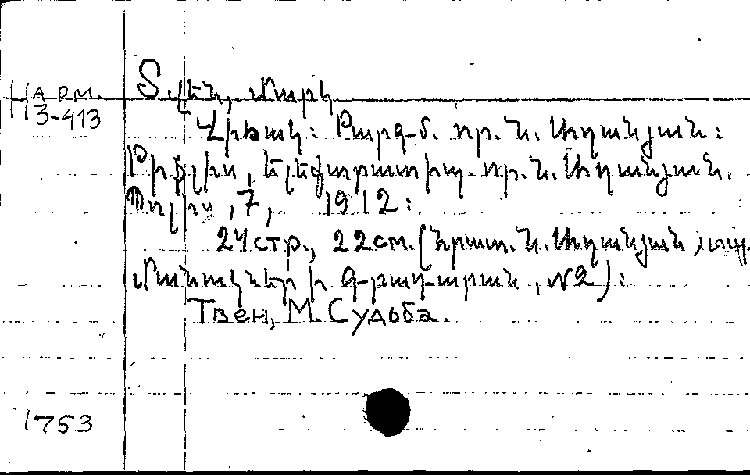 Арм.
3-413
Տվեն, Մարկ
Վիճակ: Թարգ-մ. որ. Ն. Աղանյան:
Թիֆլիս, Ելեքտրատիպ որ. Ն. Աղանյան.
Պոլիս, 7, 1912:
24 стр., 22 см. (Հրատ. Ն. Աղանյան,
գ-րադարան, №2):
Твен, М. Судьба.
1753